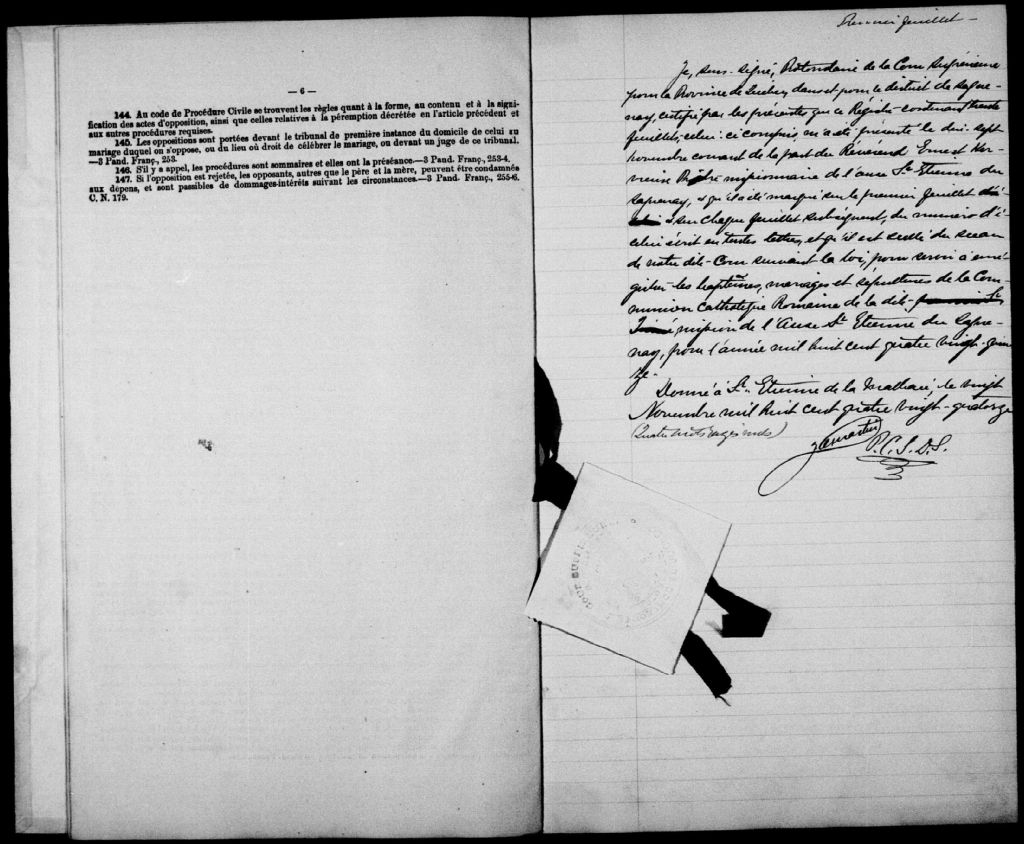 — 6 —
144. Au code de Procédure Civile se trouvent les règles quant à la forme, au contenu et à la signi-
fication des actes d'opposition, ainsi que celles relatives à la péremption décrétée en l'article précédent et
aux autres procédures requises.
145. Les oppositions sont portées devant le tribunal de première instance du domicile de celui au
mariage duquel on s'oppose, ou du lieu où droit de célébrer le mariage, ou devant un juge de ce tribunal.
—3 Pand. Franç., 253.
146. S'il y a appel, les procédures sont sommaires et elles ont la préséance.—3 Pand. Franç., 253-4.
147. Si l'opposition est rejetée, les opposants, autres que le père et la mère, peuvent être condamnés
aux dépens, et sont passibles de dommages-intérêts suivant les circonstances.—3 Pand. Franç., 255-6.
C. N. 179.
Premier feuillet —
Je, sous-signé, Protonotaire de la Cour Supérieure
pour la Province de Québec, dans et pour le district de Sague-
nay, certifie par les présentes que ce Régistre contenant trente
feuillets, celui-ci compris, m'a été présenté le dix-sept
novembre courant de la part du Révérend Ernest
Prêtre missionnaire de l'anse St. Etienne du
Saguenay, & qu'il a été marqué sur le premier feuillet
& sur chaque feuillet subséquent, du numéro d'i-
celui écrit en toutes lettres, et qu'il est scellé du sceau
de notre dite Cour suivant la loi, pour servir à enré-
gistrer les baptêmes, mariages et sépultures de la Com-
munion Catholique Romaine de la dite
mission de l'Anse St. Etienne du Sague-
nay, pour l'année mil huit cent quatre vingt-quin-
ze.
Donné à St. Etienne de la Malbaie, le vingt
Novembre mil huit cent quatre vingt-quatorze
P. C. S. D. S.
COUR SUPÉRIEURE